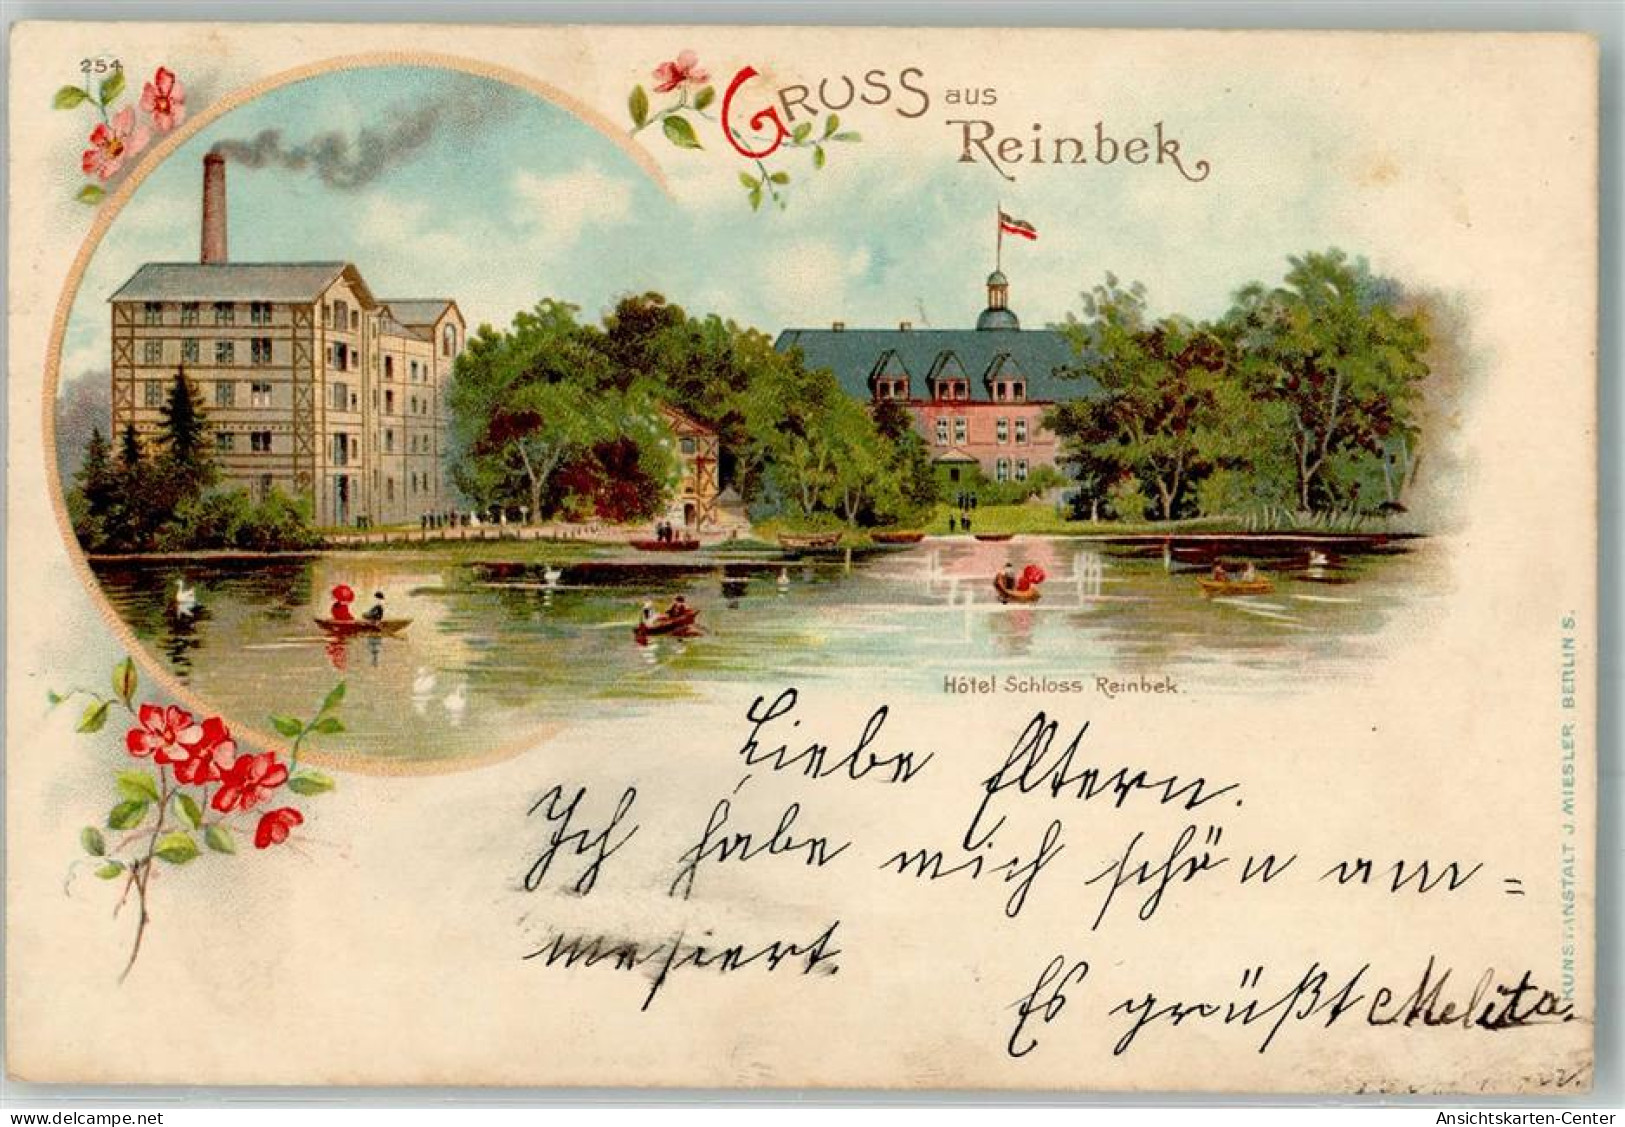 254
GRUSS aus
Reinbek
Hôtel Schloss Reinbek.
Liebe Eltern.
Ich habe mich schön am=
mesiert.
Es grüßt Melita.
KUNSTANSTALT J MIESLER BERLIN S.
Ansichtskarten-Center